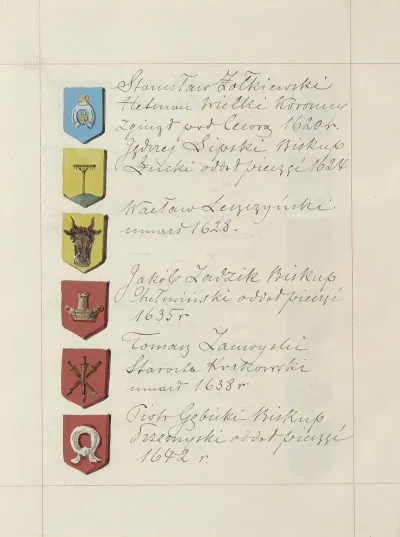 Stanisław Żołkiewski
Hetman Wielki Koronny
zginął pod Cecorą 1620 r.
Jędrzej Lipski Biskup
Łucki oddał pieczęć 1624
Wacław Leszczyński
umarł 1628.
Jakób Zadzik Biskup
Chełmiński oddał pieczęć
1635 r
Tomasz Zamoyski
Starosta Krakowski
umarł 1638 r
Piotr Gębicki Biskup
Przemyski oddał pieczęć
1642 r.